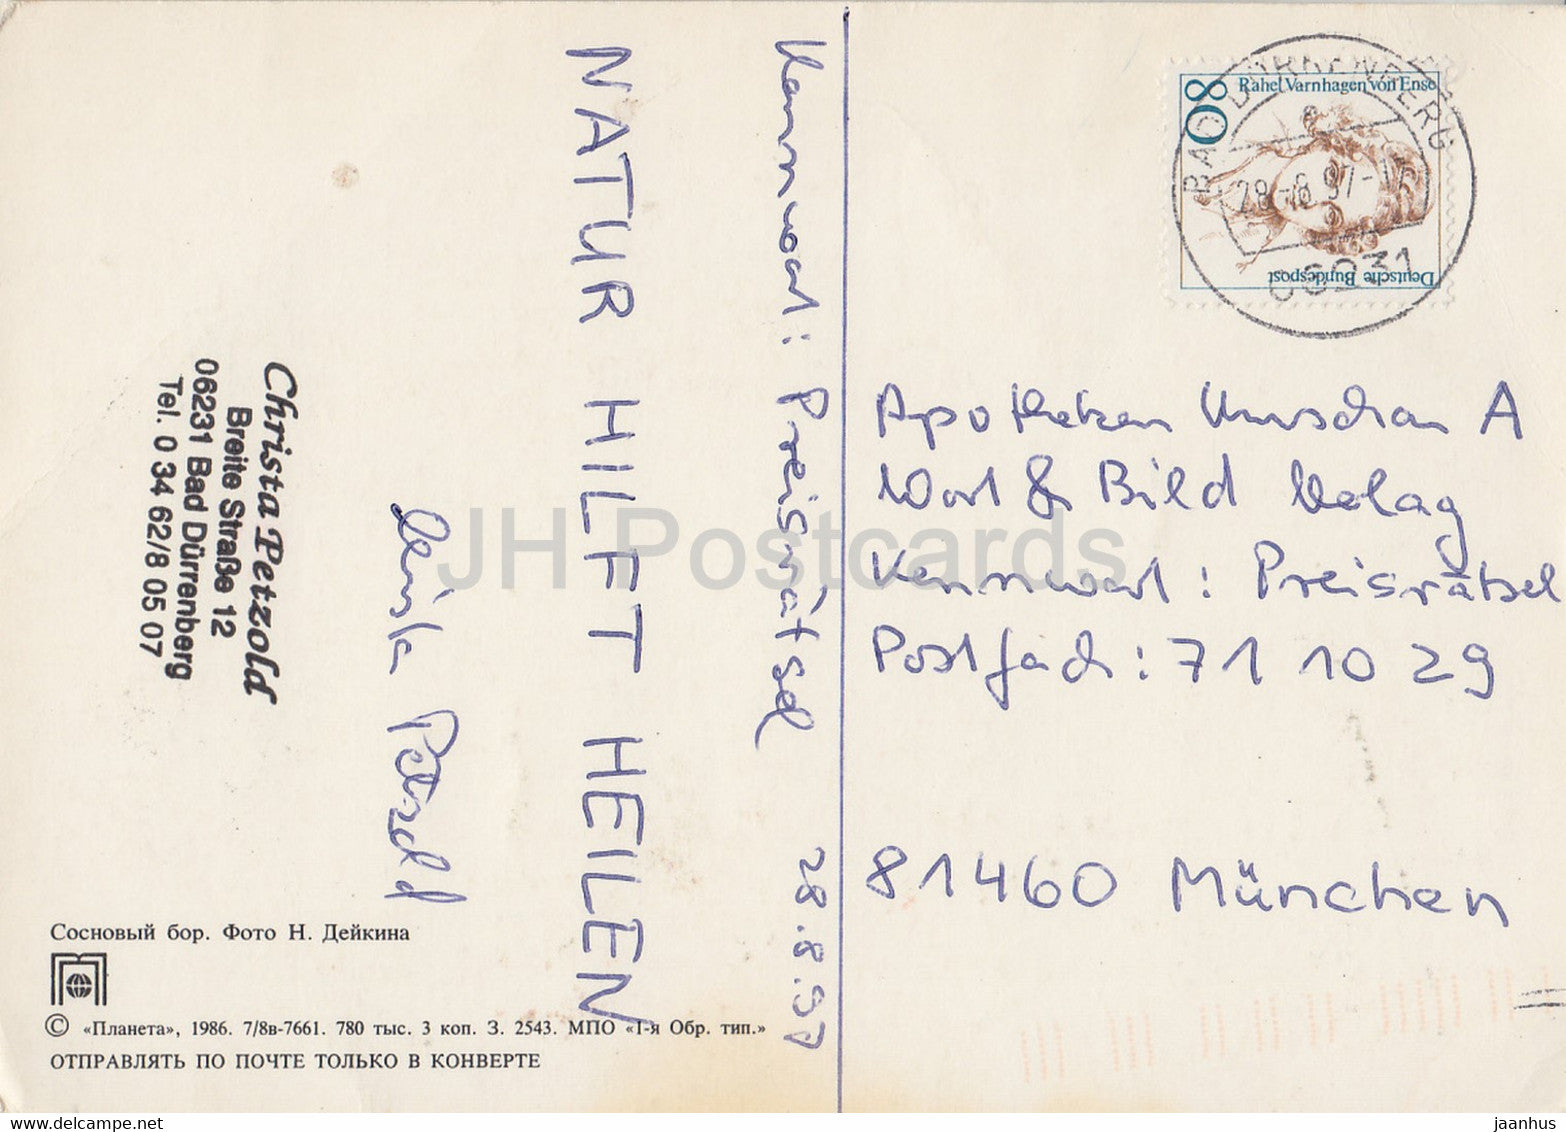 Kennwort: Preisrätsel 28.8.97
NATUR HILFT HEILEN
Christa Petzold
Christa Petzold
Breite Straße 12
06231 Bad Dürrenberg
Tel. 0 34 62/8 05 07
Сосновый бор. Фото Н. Дейкина
© «Планета», 1986. 7/8в-7661. 780 тыс. 3 коп. З. 2543. МПО «1-я Обр. тип.»
ОТПРАВЛЯТЬ ПО ПОЧТЕ ТОЛЬКО В КОНВЕРТЕ
80
Rahel Varnhagen von Ense
Deutsche Bundespost
BAD DÜRRENBERG
28.-8.97-17
06231
Apotheken Umschau A
Wort & Bild Verlag
Kennwort: Preisrätsel
Postfach: 71 10 29
81460 München
JH Postcards
www.delcampe.net
jaanhus